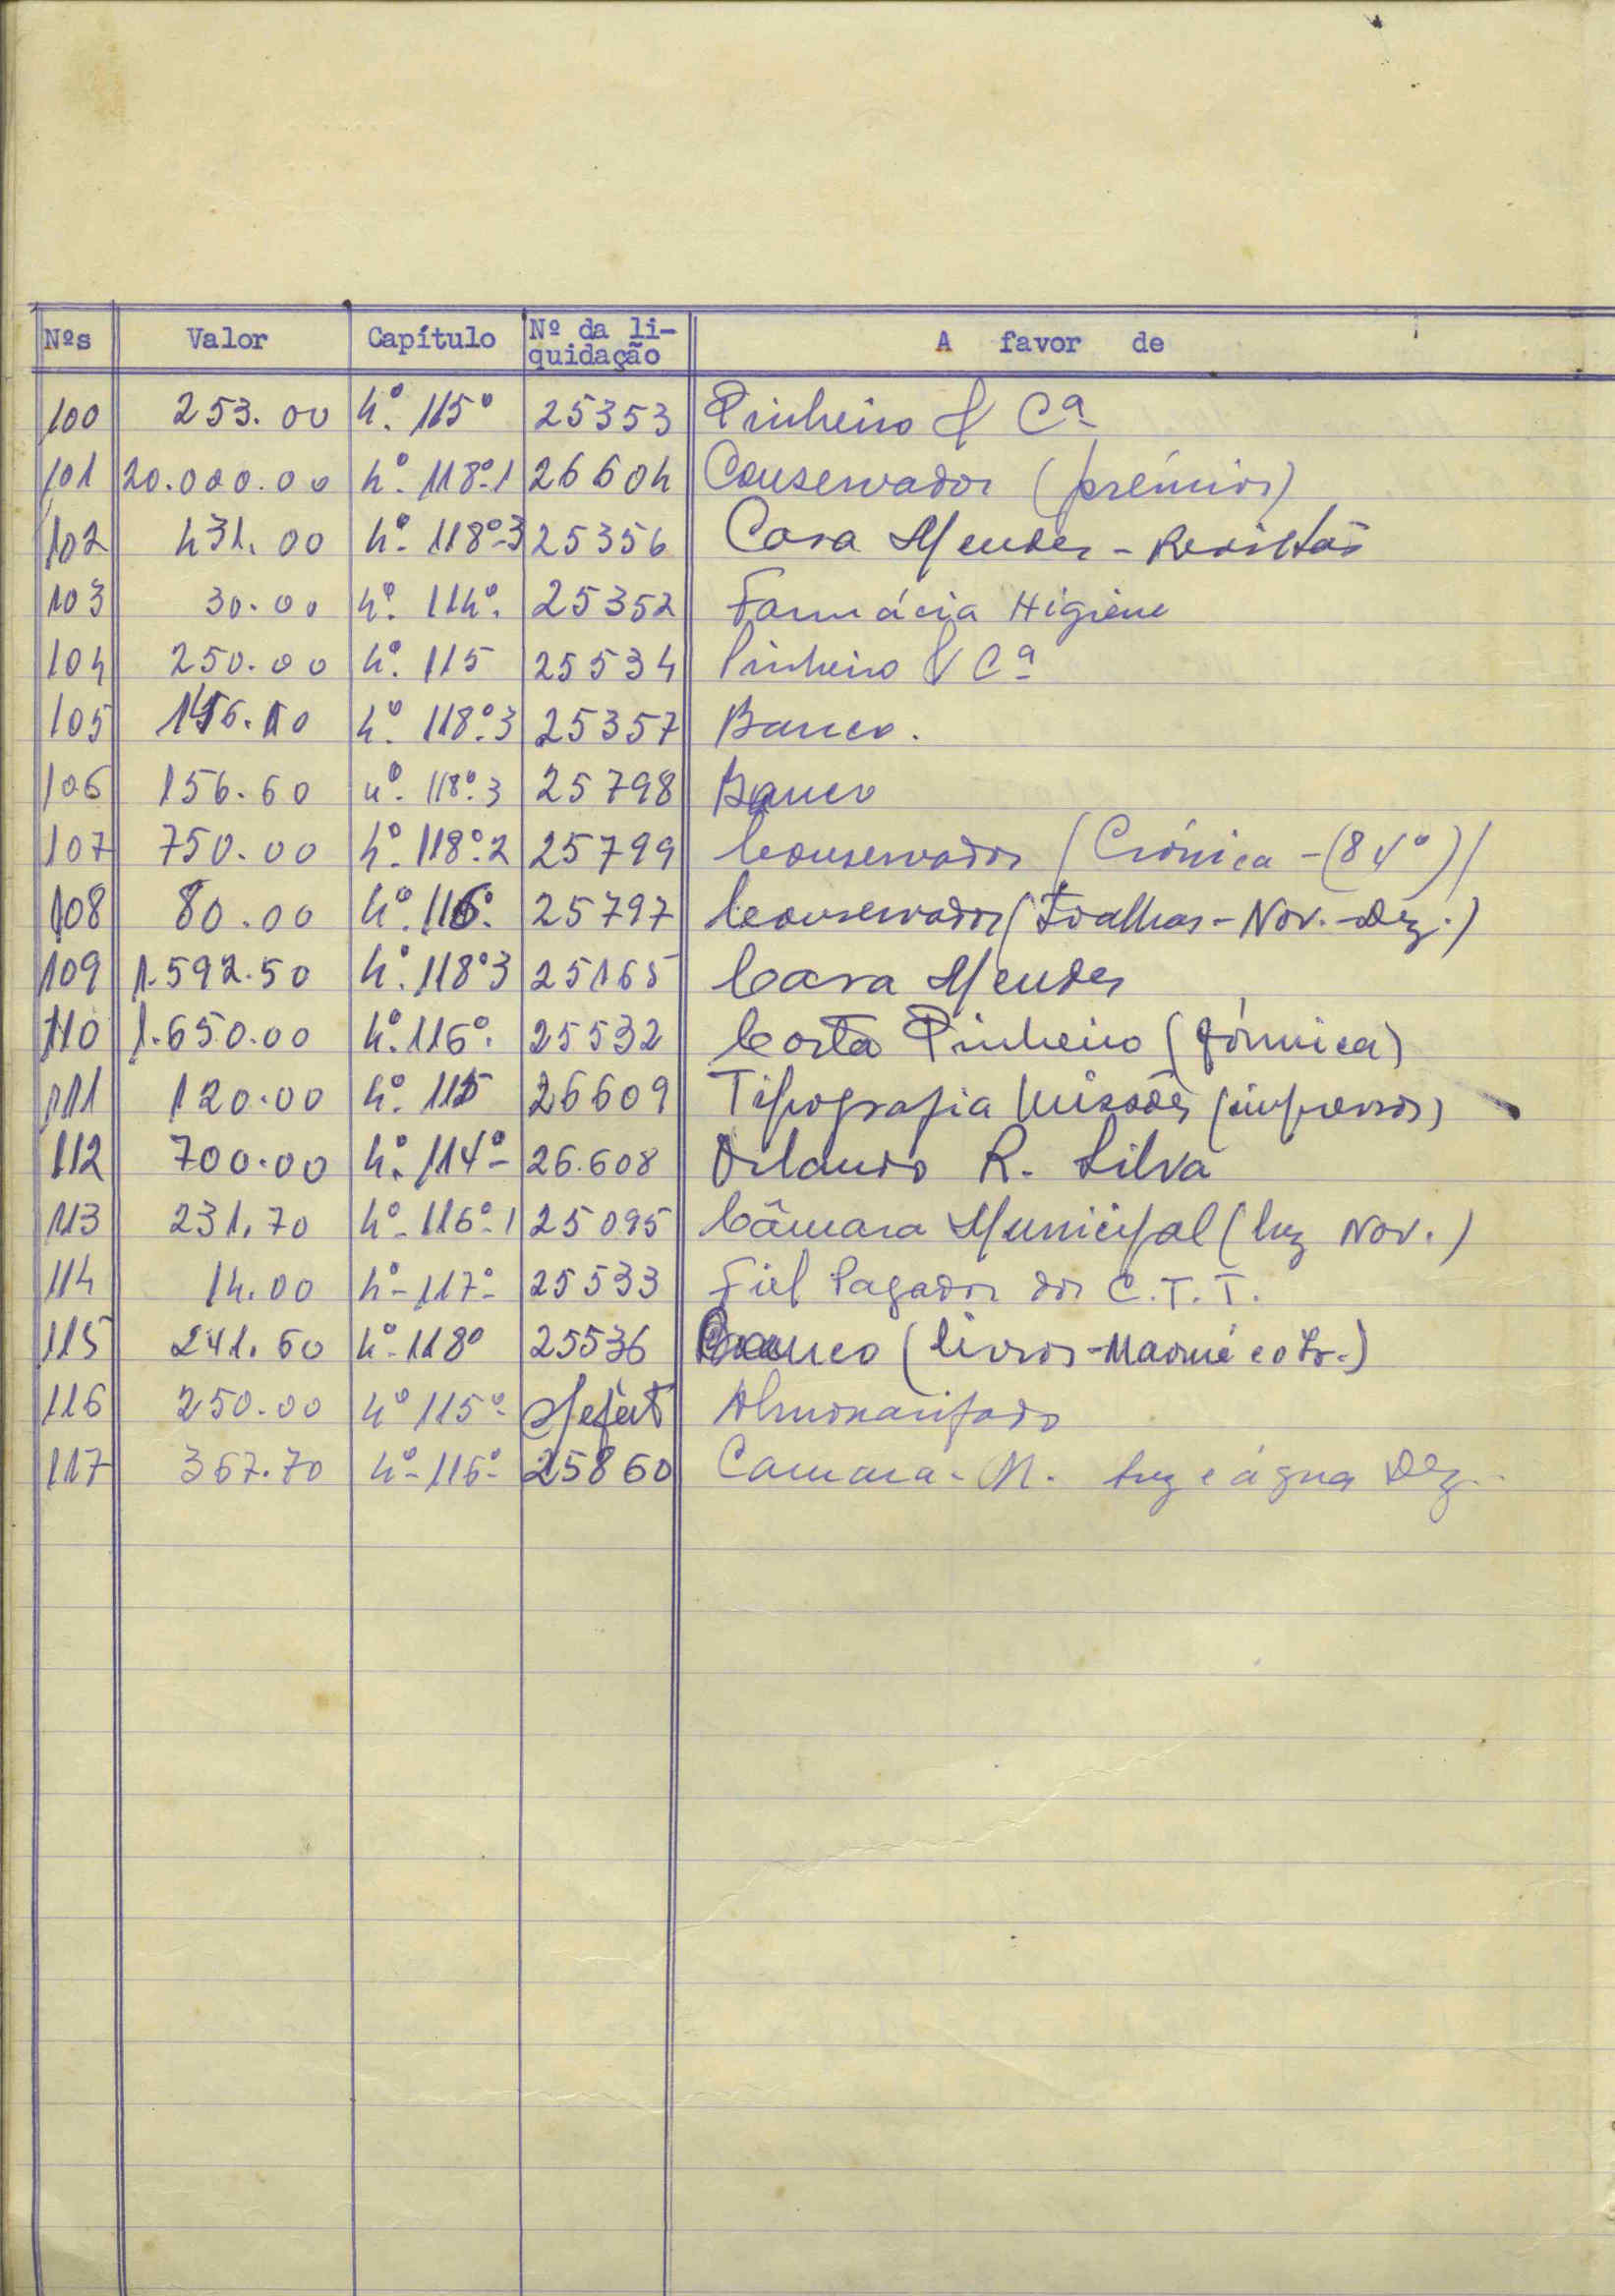 Nºs Valor Capítulo Nº da li-quidação A favor de
100 253.00 4º. 115º 25353 Pinheiro & Cª
101 20.000.00 4º. 118º-1 26604 Conservador (prémios)
102 431.00 4º. 118º-3 25356 Casa Mendes - Revistas
103 30.00 4º. 114º. 25352 Farmácia Higiene
104 250.00 4º. 115 25534 Pinheiro & Cª
105 4º. 118º.3 25357 Banco.
106 156.60 4º. 118º.3 25798 Banco
107 750.00 4º. 118º.2 25799 Conservador (Crónica - (84º))
108 80.00 4º. 116º. 25797 Conservador (Toalhas - Nov. - Dez.)
109 1.592.50 4º. 118º3 25165 Casa Mendes
110 1.650.00 4º. 116º. 25532 Costa Pinheiro (fórmica)
111 120.00 4º. 115 26609 Tipografia Missões (impressos)
112 700.00 4º. 114º- 26.608 Orlando R. Silva
113 231.70 4º- 116º-1 25095 Câmara Municipal (luz Nov.)
114 14.00 4º- 117º- 25533 Fiel Pagador dos C.T.T.
115 241.60 4º- 118º 25536 Banco (livros - Maomé e
116 250.00 4º 115º- Almoxarifado
117 367.70 4º- 116º- 25860 Camara - M. luz e água Dez.